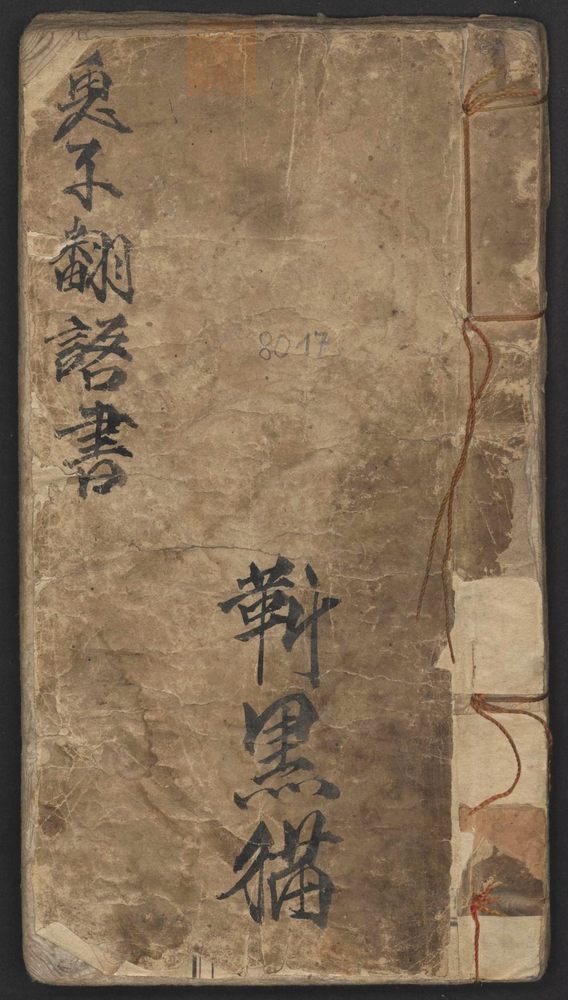 鬼子翻語書
靳黑猫
8017